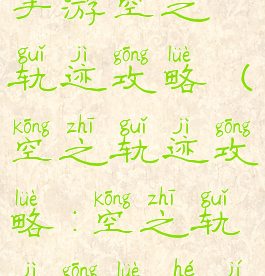 手游空之
guǐ jì gōng lüè
轨迹攻略（
kōng zhī guǐ jì gōng
空之轨迹攻
lüè kōng zhī guǐ
略：空之轨
jì gōng lüè hé jí